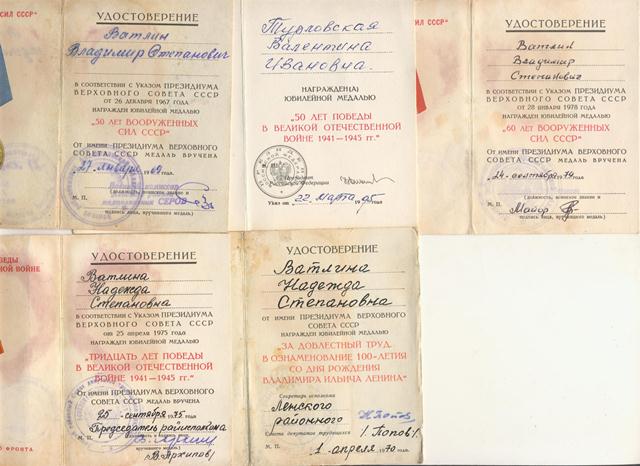 СИЛ СССР"
УДОСТОВЕРЕНИЕ
Ватлин
Владимир Степанович
В СООТВЕТСТВИИ С УКАЗОМ ПРЕЗИДИУМА
ВЕРХОВНОГО СОВЕТА СССР
ОТ 26 ДЕКАБРЯ 1967 ГОДА
НАГРАЖДЕН ЮБИЛЕЙНОЙ МЕДАЛЬЮ
"50 ЛЕТ ВООРУЖЕННЫХ
СИЛ СССР"
ОТ ИМЕНИ ПРЕЗИДИУМА ВЕРХОВНОГО
СОВЕТА СССР МЕДАЛЬ ВРУЧЕНА
27 января 1969 года
СЕРОВ
М. П.
подпись лица, вручившего медаль)
Турловская
Валентина
Ивановна.
НАГРАЖДЕН(А)
ЮБИЛЕЙНОЙ МЕДАЛЬЮ
"50 ЛЕТ ПОБЕДЫ
В ВЕЛИКОЙ ОТЕЧЕСТВЕННОЙ
ВОЙНЕ 1941—1945 гг."
Президент
Российской Федерации
Указ от 22 марта 1995 года
СИЛ СССР"
УДОСТОВЕРЕНИЕ
Ватлин
Владимир
Степанович
В СООТВЕТСТВИИ С УКАЗОМ ПРЕЗИДИУМА
ВЕРХОВНОГО СОВЕТА СССР
ОТ 28 ЯНВАРЯ 1978 ГОДА
НАГРАЖДЕН ЮБИЛЕЙНОЙ МЕДАЛЬЮ
"60 ЛЕТ ВООРУЖЕННЫХ
СИЛ СССР"
ОТ ИМЕНИ ПРЕЗИДИУМА ВЕРХОВНОГО
СОВЕТА СССР МЕДАЛЬ ВРУЧЕНА
24 сентября 1979 года
(должность, воинское звание и
М. П. Майор
подпись лица, вручившего медаль)
ПОБЕДЫ
НОЙ ВОЙНЕ
ФРОНТА
УДОСТОВЕРЕНИЕ
Ватлина
Надежда
Степановна
В СООТВЕТСТВИИ С УКАЗОМ ПРЕЗИДИУМА
ВЕРХОВНОГО СОВЕТА СССР
от 25 апреля 1975 года
НАГРАЖДЕН ЮБИЛЕЙНОЙ МЕДАЛЬЮ
"ТРИДЦАТЬ ЛЕТ ПОБЕДЫ
В ВЕЛИКОЙ ОТЕЧЕСТВЕННОЙ
ВОЙНЕ 1941—1945 гг."
ОТ ИМЕНИ ПРЕЗИДИУМА ВЕРХОВНОГО
СОВЕТА СССР МЕДАЛЬ ВРУЧЕНА
25 сентября 1975 года
Председатель райисполкома
М. П.
/В. Архипов/
УДОСТОВЕРЕНИЕ
Ватлина
Надежда
Степановна
ОТ ИМЕНИ ПРЕЗИДИУМА ВЕРХОВНОГО
СОВЕТА СССР
НАГРАЖДЕН ЮБИЛЕЙНОЙ МЕДАЛЬЮ
"ЗА ДОБЛЕСТНЫЙ ТРУД.
В ОЗНАМЕНОВАНИЕ 100-ЛЕТИЯ
СО ДНЯ РОЖДЕНИЯ
ВЛАДИМИРА ИЛЬИЧА ЛЕНИНА"
Секретарь исполкома
Ленского
районного
Совета депутатов трудящихся /Попов/
М. П.
1 апреля 1970 г.